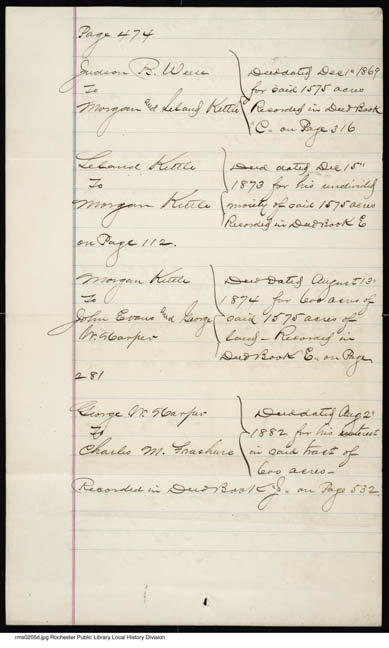 Page 474
Judson B. Wele } Deed dated Dec 1st 1869
To for said 1575 acres
Morgan and Leland Kettle Recorded in Deed Book
"C" on Page 316
Leland Kettle } Deed dated Dec 15th
To 1873 for his undivided
Morgan Kettle moiety of said 1575 acres
Recorded in Deed Book E
on Page 112.
Morgan Kettle } Deed Dated August 13th
To 1874 for 600 acres of
John Evans and George said 1575 acres of
W. Harper land - Recorded in
Deed Book E. on Page
281
George W. Harper } Deed dated Aug 2d
To 1882 for his interest
Charles M. Frashure in said tract of
600 acres -
Recorded in Deed Book "J" on Page 532
1
rms0205d.jpg Rochester Public Library Local History Division